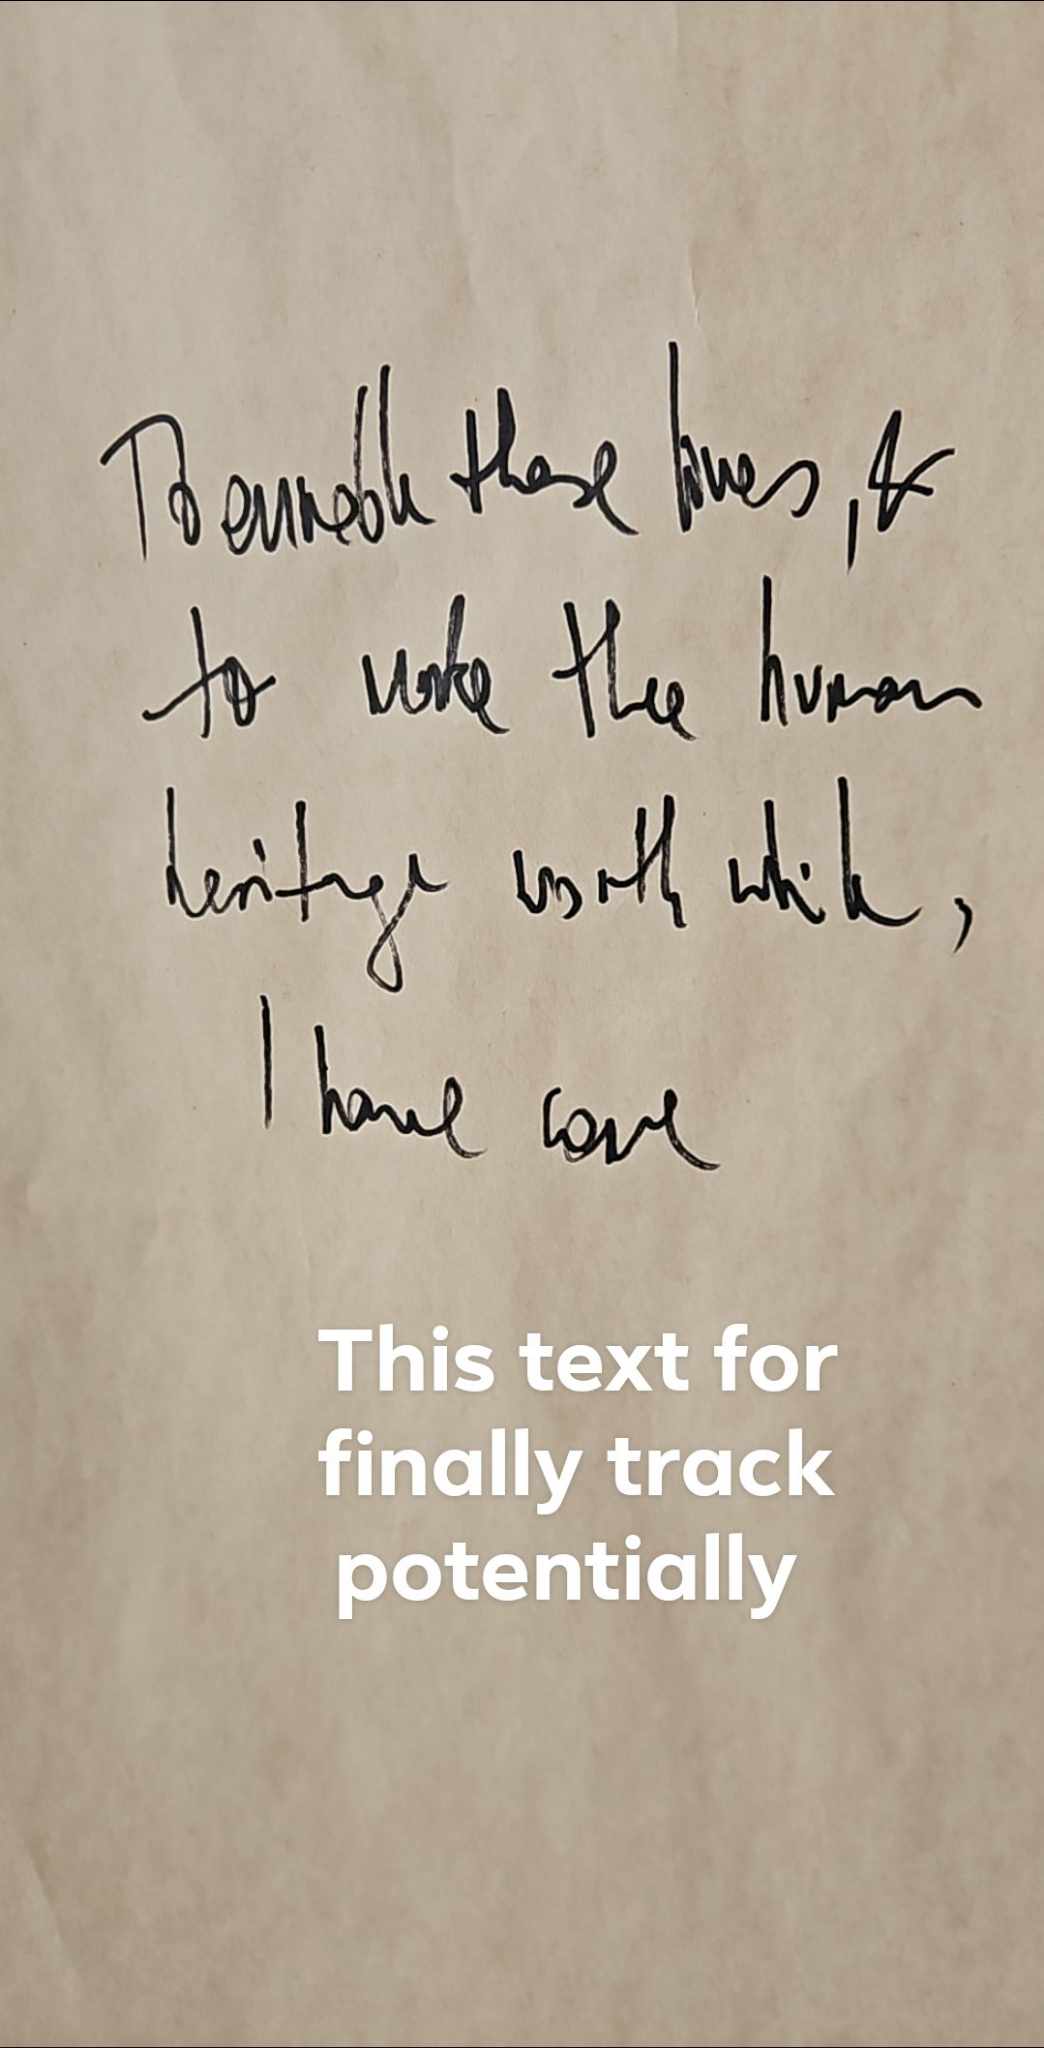 To ennoble these lives, &
to make the human
heritage worth while,
I have come
This text for
finally track
potentially